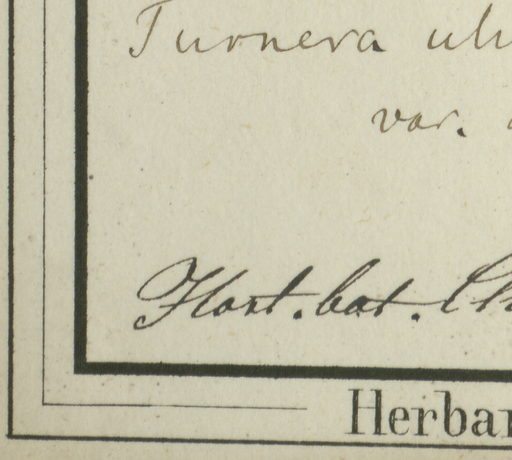 Turnera ul
var.
Hort. bot. Ch
Herbar